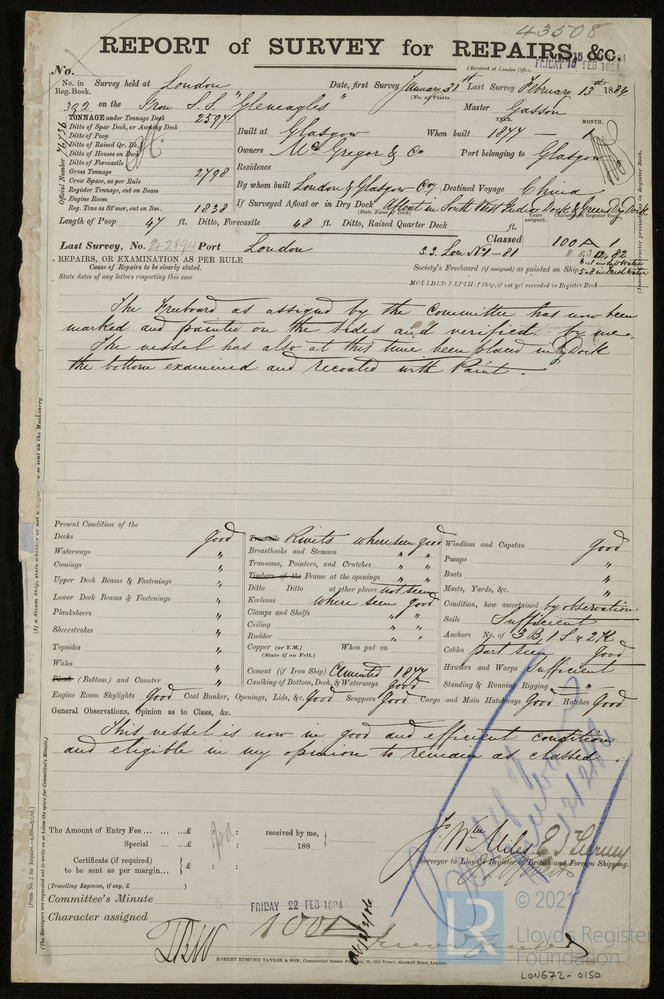 43508
REPORT of SURVEY for REPAIRS, &c.
(Received at London Office,
FRIDAY 15 FEB 1884
No.
No. in Reg. Book. Survey held at London Date, first Survey January 31st Last Survey February 13th 1884
(No. of Visits
392 on the Iron S.S. "Gleneagles" Master Gasson
TONNAGE under Tonnage Deck 2597
Ditto of Spar Deck, or Awning Deck
Ditto of Poop
Ditto of Raised Qr. Dk.
Ditto of Houses on Deck
Ditto of Forecastle
Gross Tonnage 2798
Crew Space, as per Rule
Register Tonnage, out on Beam
Engine Room
Reg. Tons as St'mer, cut on Bm. 1838
Official Number
YEAR. MONTH.
Built at Glasgow When built 1877 —
Owners McGregor & Co Port belonging to Glasgow
Residence
By whom built London & Glasgow Coy Destined Voyage China
If Surveyed Afloat or in Dry Dock Afloat in South West India Dock & Green Dry Dock
(State Name of Dock)
Length of Poop 47 ft. Ditto, Forecastle 48 ft. Ditto, Raised Quarter Deck ft.
Years assigned. Character in Register Book
Last Survey, No. 42894 Port London Classed 100 A 1
S.S. Lon No 1-81 8 83 12,82
REPAIRS, OR EXAMINATION AS PER RULE
Cause of Repairs to be clearly stated.
State dates of any letters respecting this case
Society's Freeboard (if assigned) as painted on Ship
MOULDED DEPTH of Ship, if not yet recorded in Register Book
The Freeboard as assigned by the Committee has now been
marked and painted on the sides and verified by me.
The vessel has also at this time been placed in Dry Dock
the bottom examined and recoated with Paint.
Present Condition of the
Decks Good
Waterways "
Comings "
Upper Deck Beams & Fastenings "
Lower Deck Beams & Fastenings "
Planksheers "
Sheerstrakes "
Topsides "
Wales "
Plank (Bottom) and Counter "
Treenails Rivets where seen good
Breasthooks and Stemson " "
Transoms, Pointers, and Crutches " "
Timbers of the Frame at the openings " "
Ditto Ditto at other places not seen
Keelsons where seen good
Clamps and Shelfs " "
Ceiling " "
Rudder " "
Copper (or Y.M.) When put on
(State if on Felt.)
Cement (if Iron Ship) Cemented 1877
Caulking of Bottom, Deck, & Waterways Good
Windlass and Capstan Good
Pumps "
Boats "
Masts, Yards, &c. "
Condition, how ascertained by observation
Sails Sufficient
Anchors No. of 3 B, 1 S & 2 K
Cables part seen Good
Hawsers and Warps Sufficient
Standing & Running Rigging "
Engine Room Skylights Good Coal Bunker, Openings, Lids, &c. Good Scuppers Good Cargo and Main Hatchways Good Hatches Good
General Observations, Opinion as to Class, &c.
This vessel is now in good and efficient condition
and eligible in my opinion to remain as classed.
The Amount of Entry Fee ... ... ...£ : : received by me,
Special ... ...£ : : 188
Certificate (if required) to be sent as per margin... £ : :
(Travelling Expenses, if any, £ )
Jo Wm Miles
Surveyor to Lloyd's Register of British and Foreign Shipping.
Committee's Minute FRIDAY 22 FEB 1884
Character assigned 100A
ROBERT EDMUND TAYLOR & SON, Commercial Steam Printers, 19, Old Street, Goswell Road, London.
© 2021
LR
Lloyd's Register
Foundation
LON672-0150